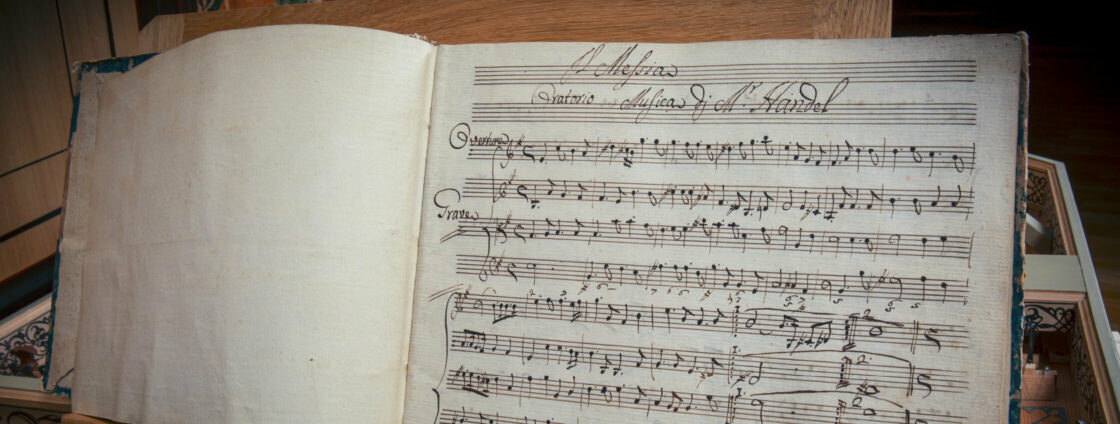 Il Messia
Oratorio Musica di Mr. Händel
Overtura
Grave